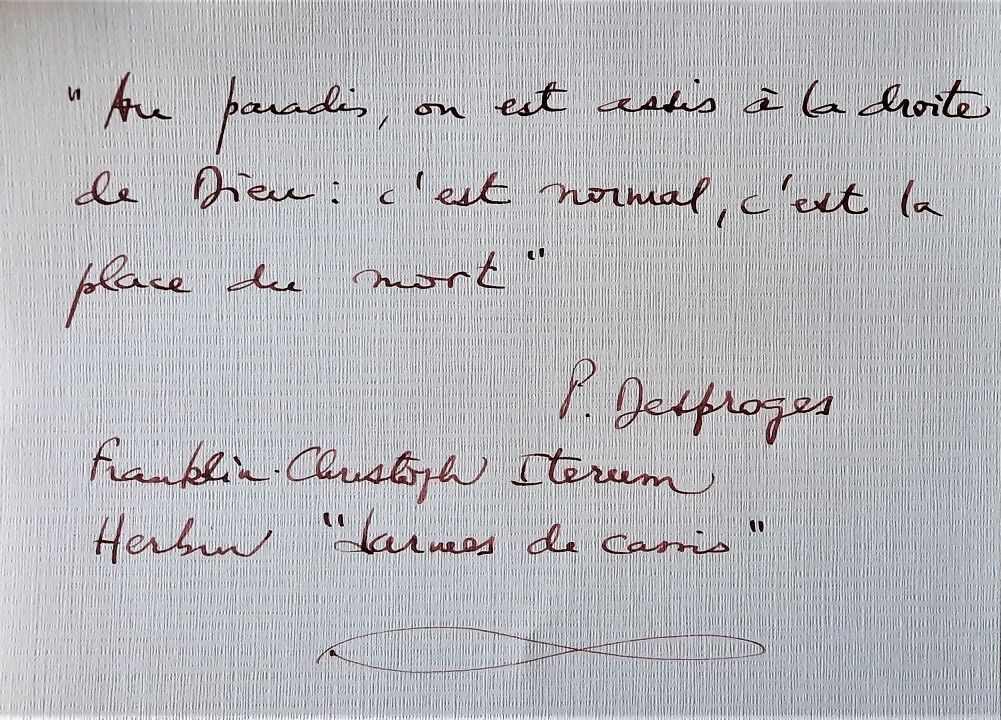 "Au paradis, on est assis à la droite
de Dieu : c'est normal, c'est la
place du mort"
P. Desproges
Franklin-Christoph Iterum
Herbin "Larmes de cassis"